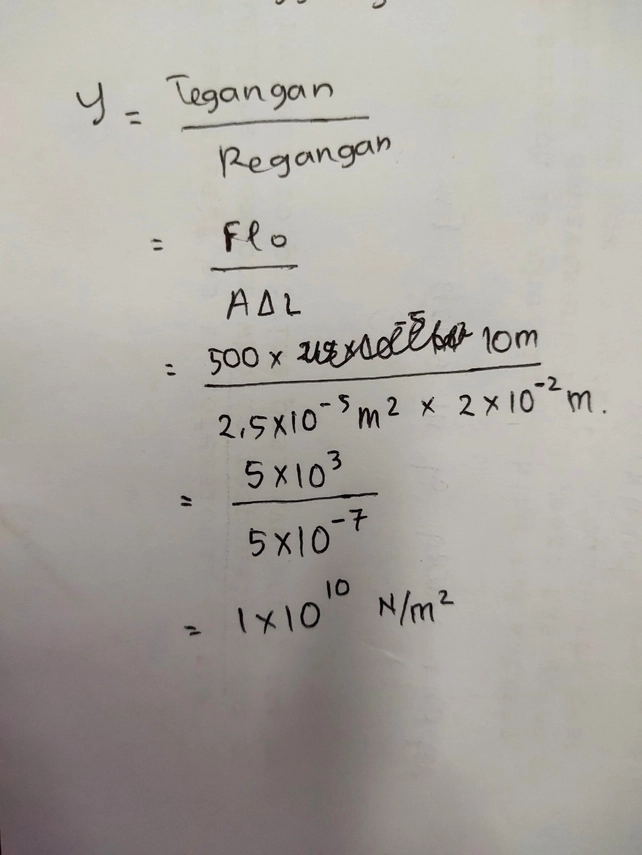 y = Tegangan
Regangan
= Fl₀
AΔL
= 500 × 10m
2,5×10⁻⁵ m² × 2×10⁻² m.
= 5×10³
5×10⁻⁷
= 1×10¹⁰ N/m²